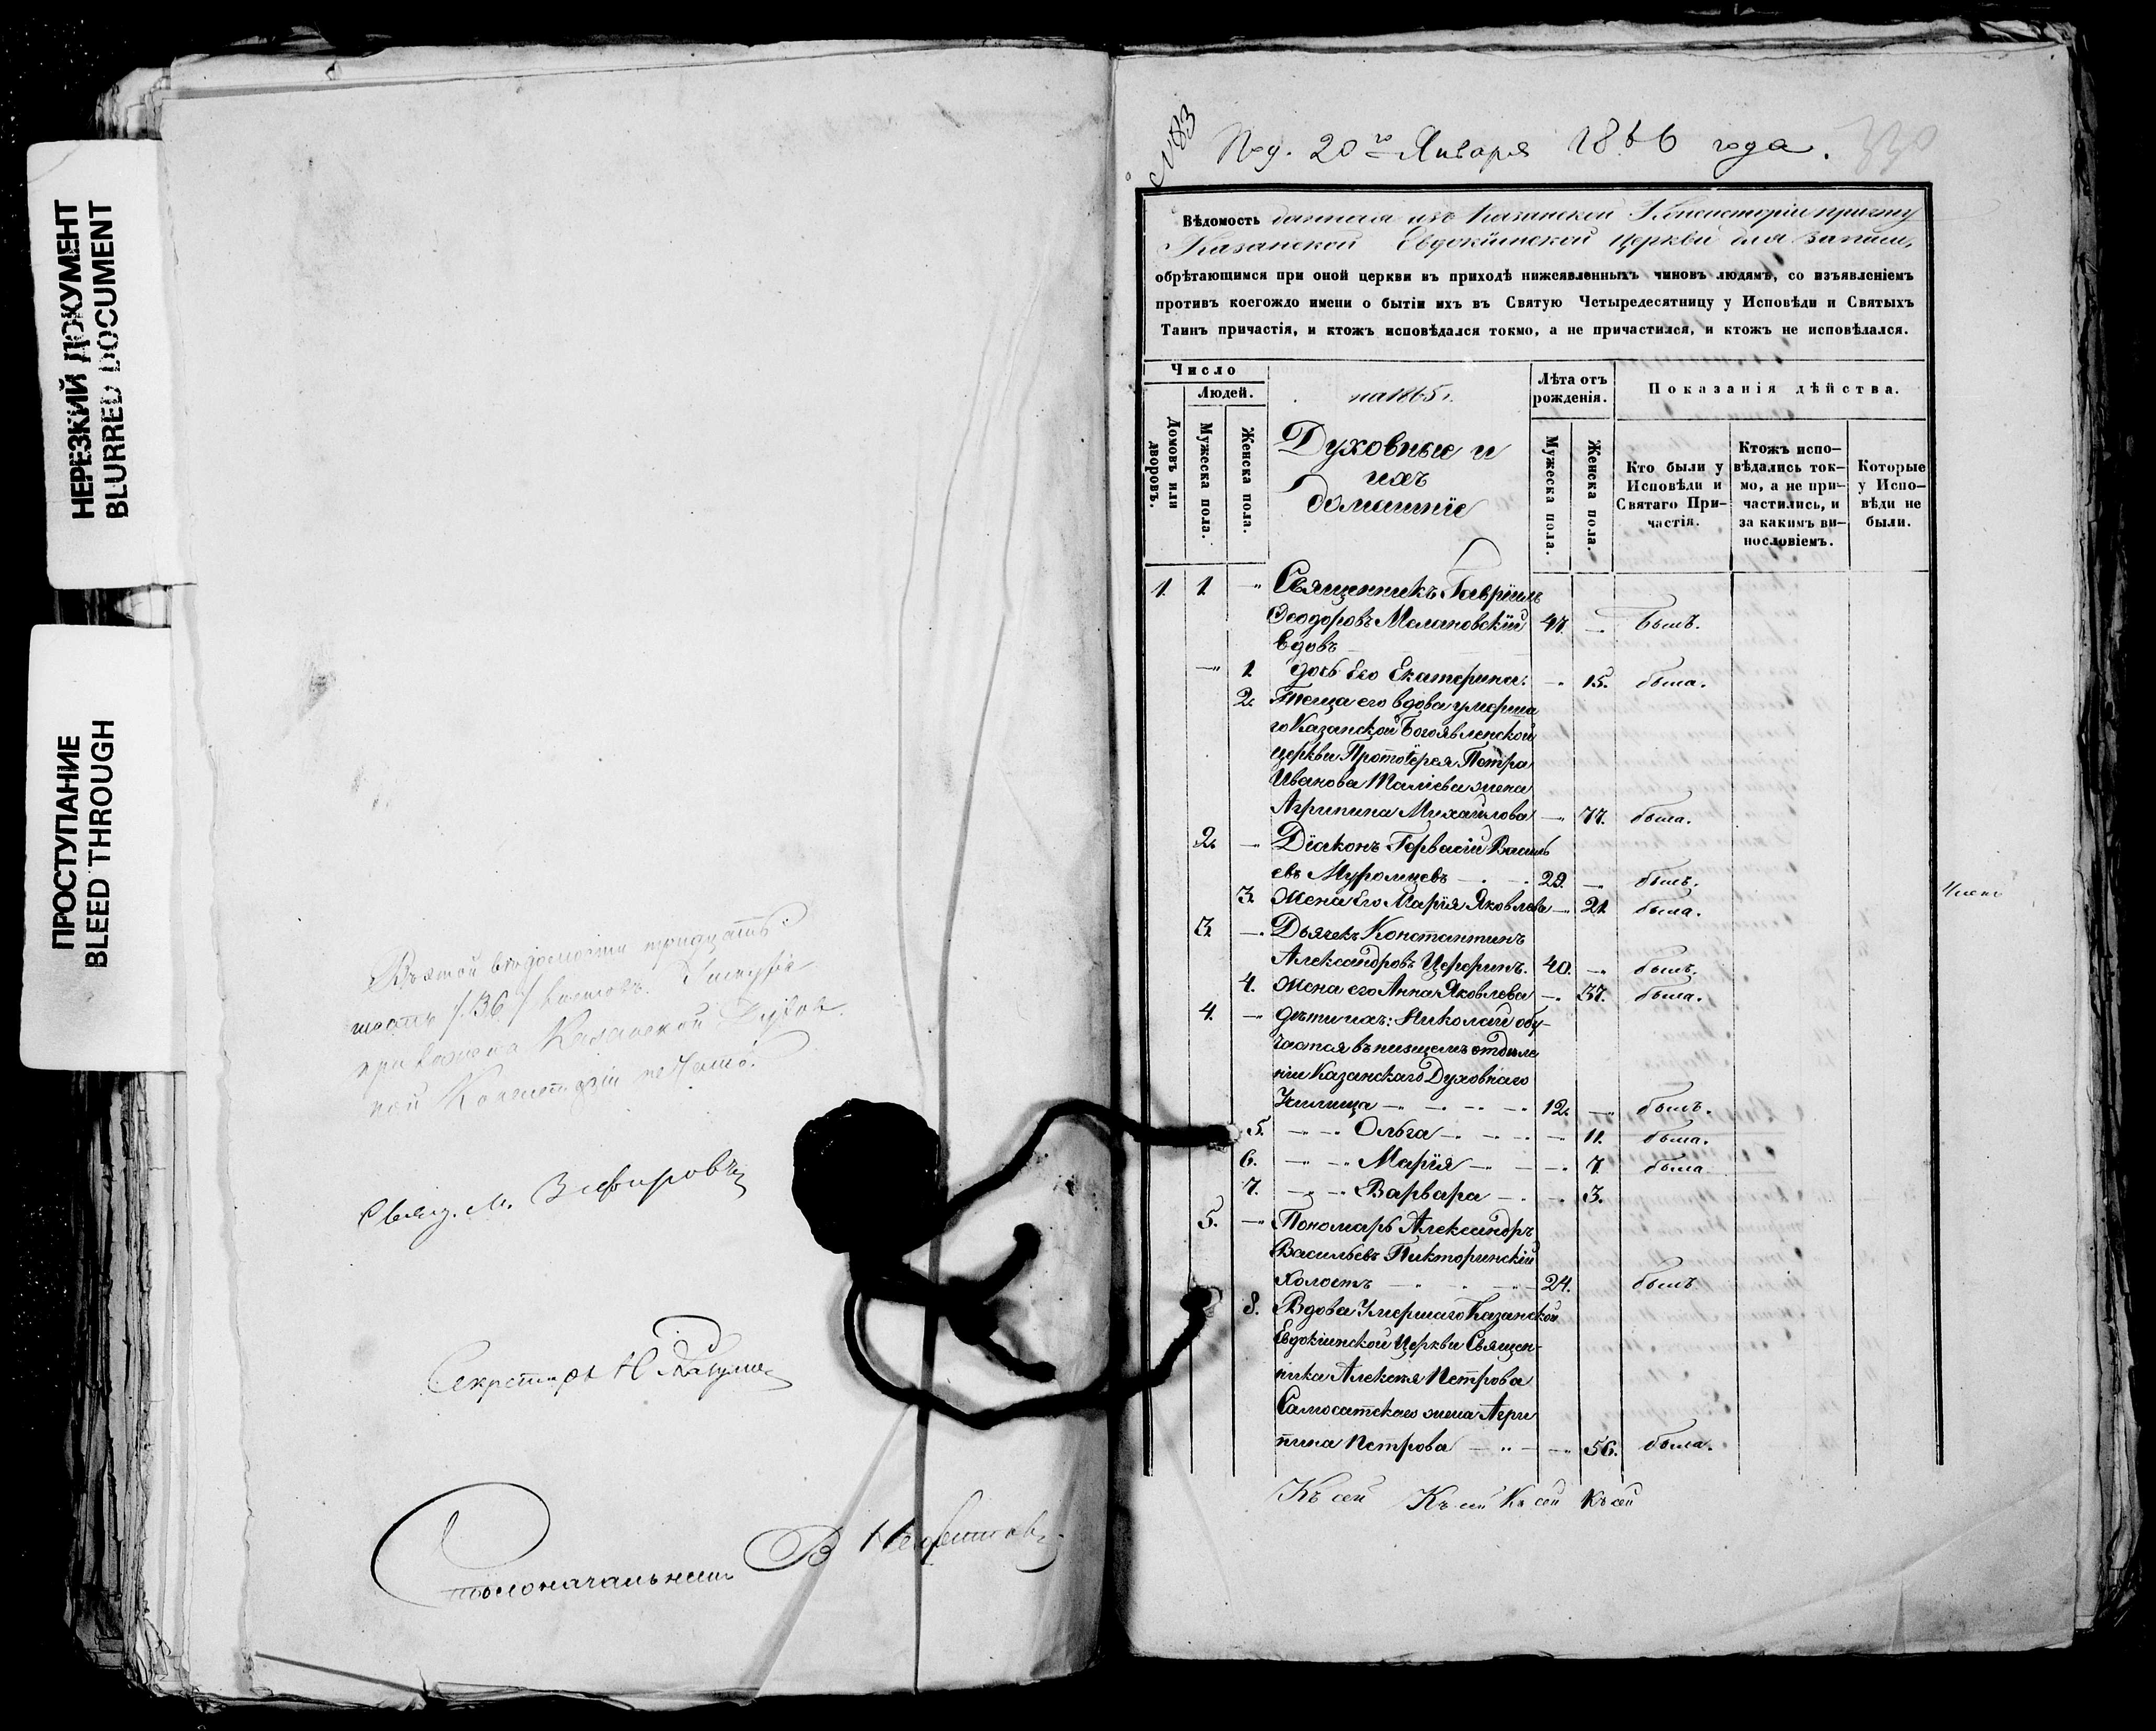 НЕРЕЗКИЙ ДОКУМЕНТ
BLURRED DOCUMENT
ПРОСТУПАНИЕ
BLEED THROUGH
Въ этой вѣдомости тридцать
шесть /36/ листовъ.
приложена Казанской Духов-
ной Консисторіи печать.
Свящ. М. Зефировъ
Секретарь Н
Столоначальникъ В
№ 83
Под. 20го Января 1866 года.
330
Вѣдомость данная изъ Казанской Консисторіи причту
Казанской Евдокіинской церкви для записи,
обрѣтающимся при оной церкви въ приходѣ нижеявленныхъ чиновъ людямъ, со изъявленіемъ
противъ коегождо имени о бытіи ихъ въ Святую Четыредесятницу у Исповѣди и Святыхъ
Таинъ причастія, и ктожъ исповѣдался токмо, а не причастился, и ктожъ не исповѣдался.
Число
Людей.
Домовъ или дворовъ.
Мужеска пола.
Женска пола.
на 1865 г.
Духовные и
ихъ
домашніе
Лѣта отъ рожденія.
Мужеска пола.
Женска пола.
Показанія дѣйства.
Кто были у Исповѣди и Святаго При-частія.
Ктожъ испо-вѣдались ток-мо, а не при-частились, и за какимъ ви-нословіемъ.
Которые у Испо-вѣди не были.
1. 1. — Священникъ Гавріилъ
Ѳеодоровъ Малановскій 47. — былъ.
вдовъ
— 1. дочь Его Екатерина. — 15. была.
2. Теща его вдова умерша
го Казанской Богоявленской
церкви Протоіерея Петра
Иванова Талиева жена
Агрипина Михайлова — 77. была.
2. — Діаконъ Гервасій Василь
евъ Муромцевъ 29. — былъ.
3. Жена Его Марія Яковлева — 21. была.
3. — Дьячекъ Константинъ
Александровъ Цереринъ. 40. — былъ.
4. Жена его Анна Яковлева — 37. была.
4. — дѣти ихъ: Николай обу-
чается въ низшемъ отдѣле
ніи Казанскаго Духовнаго
Училища 12. — былъ.
5. Ольга — 11. была.
6. Марія — 7. была
7. Варвара — 3.
5. — Пономарь Александръ
Васильевъ Пикторинскій
холостъ 24. былъ
8. Вдова Умершаго Казанской
Евдокіинской Церкви Священ-
ника Алексея Петрова
Самосатскаго жена Агри
пина Петрова — 56. была.
Къ сей Къ сей Къ сей Къ сей